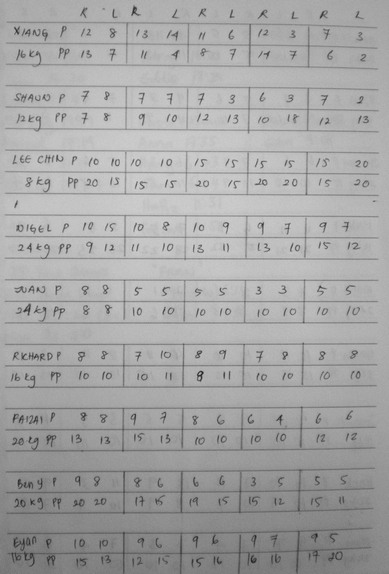 R L R L R L R L R L
XIANG P 12 8 13 14 11 6 12 3 7 3
16kg PP 13 7 11 4 8 7 14 7 6 2
SHAUN P 7 8 7 7 7 3 6 3 7 2
12kg PP 7 8 9 10 12 13 10 18 12 13
LEE CHIN P 10 10 10 10 15 15 15 15 15 20
8kg PP 20 15 15 15 20 15 20 20 15 20
NIGEL P 10 15 10 8 10 9 9 7 9 7
24kg PP 9 12 11 10 13 11 13 10 15 12
JUAN P 8 8 5 5 5 5 3 3 5 5
24kg PP 8 8 10 10 10 10 10 10 10 10
RICHARD P 8 8 7 10 8 9 7 8 8 8
16kg PP 10 10 10 11 8 11 10 10 10 10
FAIZAL P 8 8 9 7 8 6 6 4 6 6
20kg PP 13 13 15 13 10 10 10 10 12 12
Beny P 9 8 8 6 6 6 3 5 5 5
20kg PP 20 20 17 15 19 15 15 12 15 11
Eyan P 10 10 9 6 9 6 9 7 9 5
16kg PP 15 13 12 15 15 16 16 16 17 20